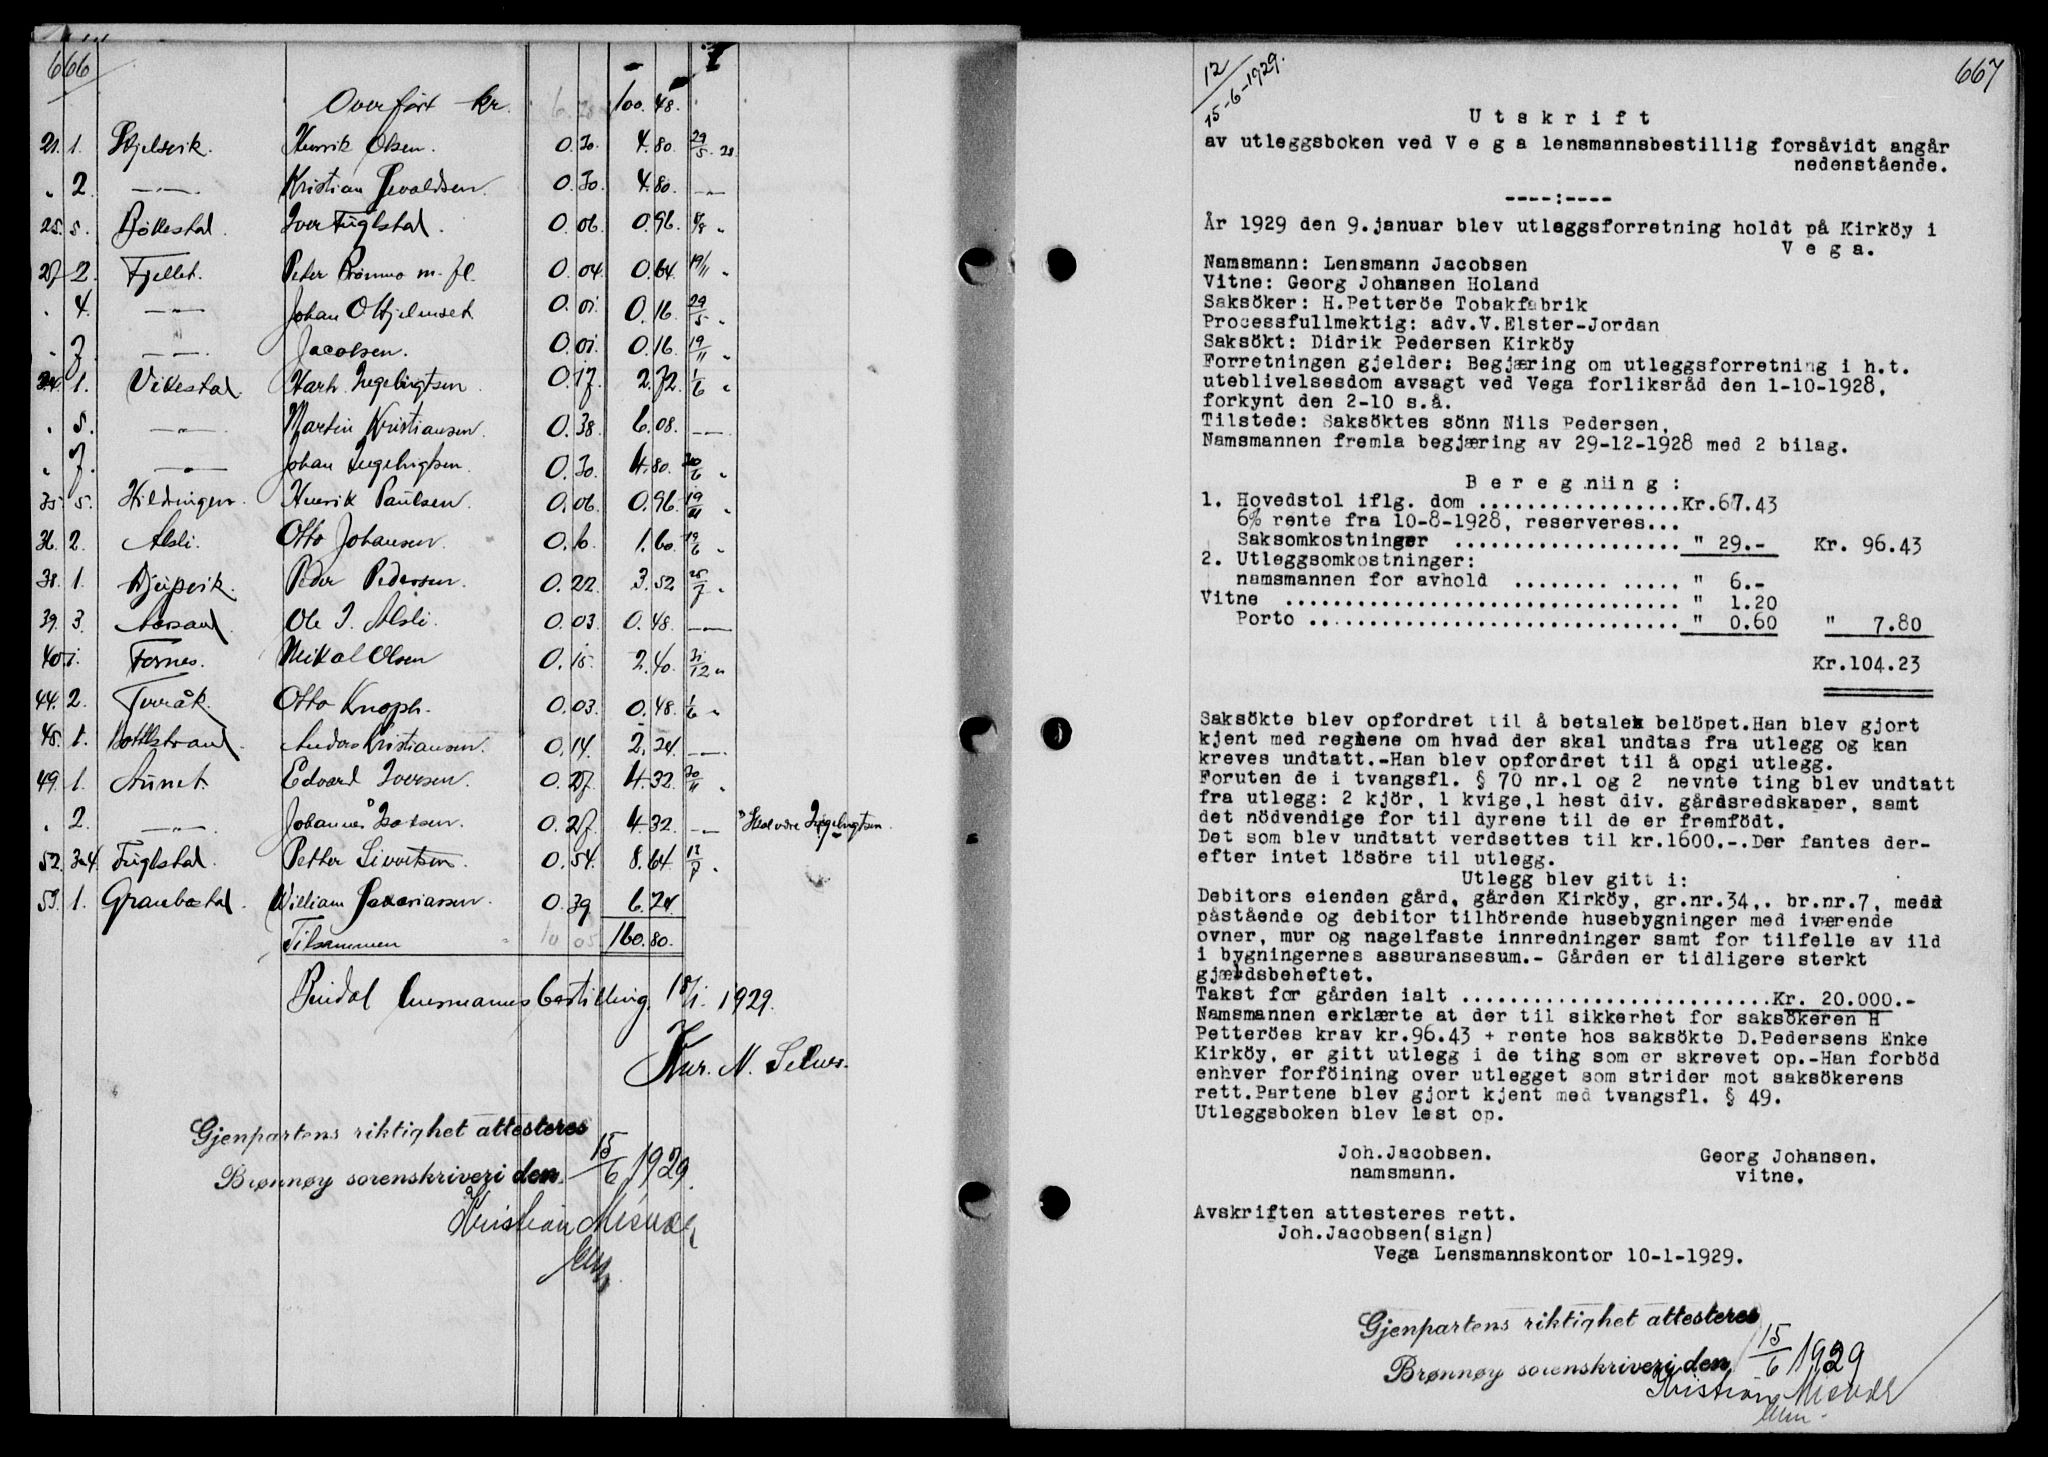 666
Overført kr. 100.48.
21. 1. Skjelsvik. Henrik Olsen. 0.30. 4.80. 29/5. 28
" 2. —"— Kristian 0.30. 4.80. —"—
25. 5. Bøkestad. Iver Fuglstad. 0.06. 0.96. "
27. 2. Fjellet. Peter Brønmo m. fl. 0.04. 0.64. 19/11 "
" 4. —"— Johan O 0.01. 0.16. 29/5 "
" 7. —"— Jacobsen. 0.01. 0.16. 19/11 "
34. 1. Vikestad. Hartv. Ingebrigtsen. 0.17. 2.72. 1/6 "
" 5. —"— Martin Kristiansen. 0.38. 6.08. —"—
" 7. —"— Johan Ingebrigtsen. 0.30. 4.80. 20/6 "
35. 5. Hildringen. Henrik Paulsen. 0.06. 0.96. 19/11 "
36. 2. Alsli. Otto Johansen. 0.10. 1.60. 19/6 "
38. 1. Djupvik. Peder Pedersen. 0.22. 3.52. 25/7 "
39. 3. Aarsand. Ole J. Alsli. 0.03. 0.48. —"—
40. 1. Fornes. Mikal Olsen 0.15. 2.40. 31/12 "
44. 2. Terråk. Otto Knoph. 0.03. 0.48. 1/6 "
48. 1. Anders Kristiansen. 0.14. 2.24. —"—
49. 1. Aunet. Edvard Iversen. 0.27. 4.32. 30/11 "
" 2. —"— Johannes 0.27. 4.32. —"— Skal være Ingebrigtsen.
52. 3a4. Fuglstad. Petter Sivertsen. 0.54. 8.64. 13/7 "
53. 1. Granbostad. William Zakariassen. 0.39 6.24.
Tilsammen " 10 05 160.80.
Bindal lensmannsbestilling, 18/1. 1929.
Kur. N. Selnes.
Gjenpartens riktighet attesteres
Brønnøy sorenskriveri den 15/6 1929.
Kristian
667
12/15-6-1929.
Utskrift
av utleggsboken ved Vega lensmannsbestillig forsåvidt angår
nedenstående.
----:----
År 1929 den 9.januar blev utleggsforretning holdt på Kirköy i
Vega.
Namsmann: Lensmann Jacobsen
Vitne: Georg Johansen Holand
Saksöker: H.Petteröe Tobakfabrik
Processfullmektig: adv.V.Elster-Jordan
Saksökt: Didrik Pedersen Kirköy
Forretningen gjelder: Begjæring om utleggsforretning i h.t.
uteblivelsesdom avsagt ved Vega forliksråd den 1-10-1928,
forkynt den 2-10 s.å.
Tilstede: Saksöktes sönn Nils Pedersen,
Namsmannen fremla begjæring av 29-12-1928 med 2 bilag.
Beregning:
1. Hovedstol iflg. dom ..................Kr.67.43
6% rente fra 10-8-1928, reserveres...
Saksomkostninger .................... " 29.- Kr. 96.43
2. Utleggsomkostninger:
namsmannen for avhold ........ ...... " 6.-
Vitne ................................... " 1.20
Porto ................................. " 0.60 " 7.80
Kr.104.23
Saksökte blev opfordret til å betale belöpet.Han blev gjort
kjent med reglene om hvad der skal undtas fra utlegg og kan
kreves undtatt.-Han blev opfordret til å opgi utlegg.
Foruten de i tvangsfl. § 70 nr.1 og 2 nevnte ting blev undtatt
fra utlegg: 2 kjör, 1 kvige,1 hest div. gårdsredskaper, samt
det nödvendige for til dyrene til de er fremfödt.
Det som blev undtatt verdsettes til kr.1600.-.Der fantes der-
efter intet lösöre til utlegg.
Utlegg blev gitt i:
Debitors eienden gård, gården Kirköy, gr.nr.34,. br.nr.7, med
påstående og debitor tilhörende husebygninger med iværende
ovner, mur og nagelfaste innredninger samt for tilfelle av ild
i bygningernes assuransesum.- Gården er tidligere sterkt
gjældsbeheftet.
Takst for gården ialt ............................Kr. 20.000.-
Namsmannen erklærte at der til sikkerhet for saksökeren H
Petteröes krav kr.96.43 + rente hos saksökte D.Pedersens Enke
Kirköy, er gitt utlegg i de ting som er skrevet op.-Han forböd
enhver forföining over utlegget som strider mot saksökerens
rett.Partene blev gjort kjent med tvangsfl. § 49.
Utleggsboken blev lest op.
Joh.Jacobsen. Georg Johansen.
namsmann. vitne.
Avskriften attesteres rett.
Joh.Jacobsen(sign)
Vega Lensmannskontor 10-1-1929.
Gjenpartens riktighet attesteres
Brønnøy sorenskriveri den 15/6 1929
Kristian